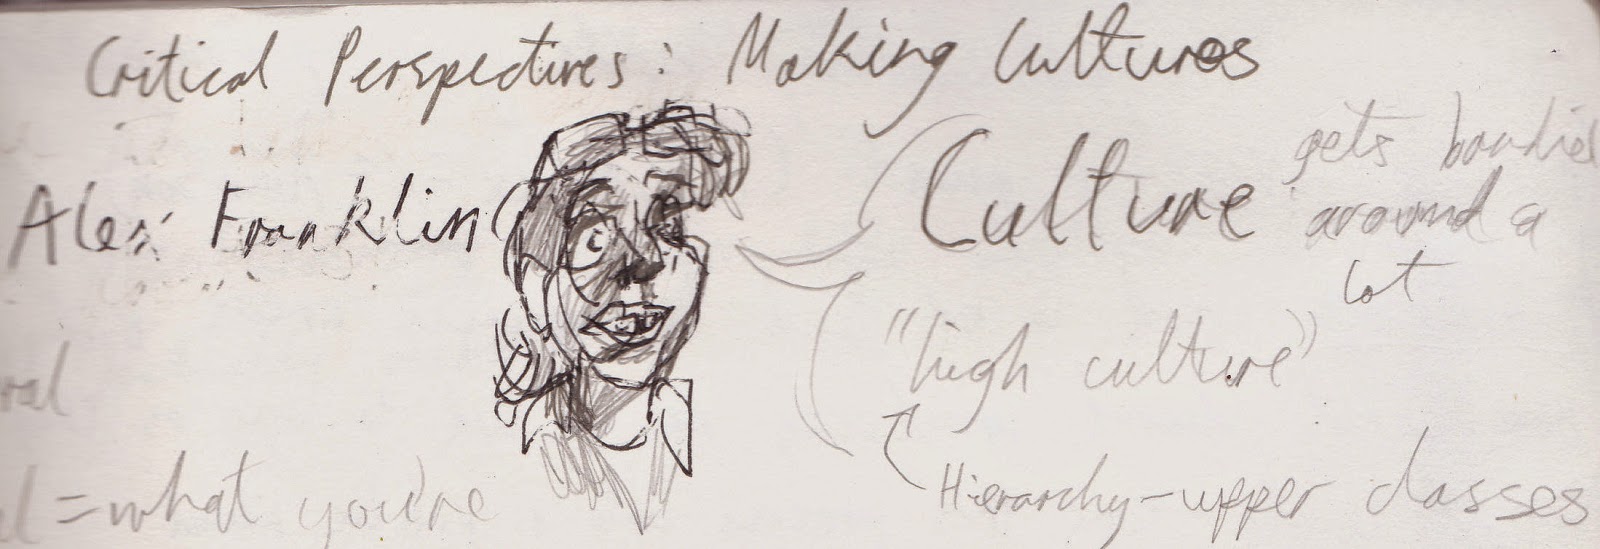 Critical Perspectives: Making Cultures
Alex Franklin
Culture gets bandied
around a
lot
"high culture"
Hierarchy-upper classes
=what you're